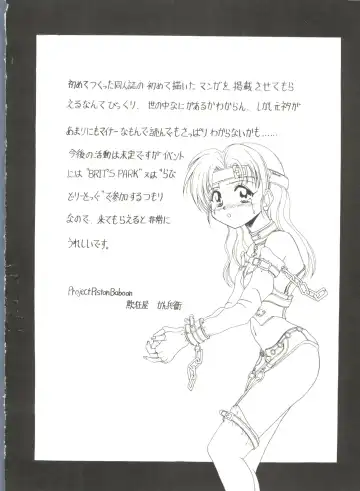 初めてつくった同人誌の初めて描いたマンガを掲載させてもら
えるなんてびっくり、世の中なにがあるかわからん。しかし元ネタが
あまりにもマイナーなもんで読んでもさっぱりわからないかも……
今後の活動は未定ですがイベント
には "BRIT'S PARK" 又は "らな
とりーとっぐ" で参加するつもり
なので、来てもらえると非常に
うれしいです。
Project Piston Baboon
がん兵衛